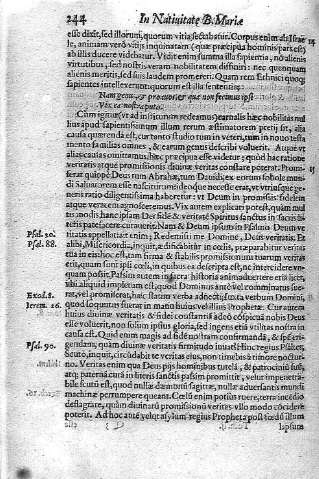 244 In Natiuitate B. Mariæ
esse dixit, sed illorum, quorum vitia sectabatur. Corpus enim ab Israe
le, animam verò vitijs inquinatam (quæ præcipua hominis pars est)
ab illis ducere videbatur. Vidit enim summa illa sapientia, nō alienis
virtutibus, sed nostris veram nobilitatem diffiniri: nec quenquam
alienis meritis, sed suis laudem promereri. Quam rem Ethnici quoq;
sapientes intellexerunt: quorum est illa sententia:
Nam genus, & proauos, & quæ non fecimus ipsi
Vix ea nostra
Cum igitur (vt ad institutum redeamus) carnalis hæc nobilitas nul
lius apud sapientissimum illum rerum æstimatorem pretij sit, alia
causa quærenda est, cur tanto studio tum in veteri, tum in nouo testa
mento familias omnes, & earum genus describi voluerit. Atque vt
alias causas omittamus, hæc præcipua esse videtur; quòd hac ratione
veritas atque promissionis diuinæ veritas constare poterat. Promise
rat quippè Deus tum Abrahæ, tum Dauidi, ex eorum sobole mun
di saluatorem esse nasciturum: ideoque necesse erat, vt vtriusque ge-
neris ratio diligentissima haberetur: vt Deum in promissis fidelem
atque veracem agnosceremus. Vix autem explicari potest, quàm mul
tis modis hanc ipsam Dei fidē & veritatē Spiritus sanctus in sacris li-
teris patefacere curauerit. Nam & Deum ipsum in Psalmis Deum ve
Psal. 30. ritatis appellat: ait enim; Redemisti me Domine, Deus veritatis. Et
Psal. 88. alibi, Misericordia, inquit, ædificabitur in cœlis, præparabitur veritas
tua in eis: hoc est, tam firma & stabilis promissionū tuarum veritas
erit, quàm sunt ipsi cœli, in quibus ea descripta est, nec intercidere vn-
quam possit. Passim autem in sacra historia animaduertere erit licet,
vbi aliquid impletum est, quod Dominus antè vel comminatus fue-
Exod. 8. rat, vel promiserat, hæc statim verba adnecti; Iuxta verbum Domini,
Ierem. 26. quod loquutus fuerat in manu huius vel illius Prophetæ. Cur autem
huius diuinæ veritatis & fidei constantiā adeò conspicuā nobis Deus
esse voluerit, non solùm ipsius gloria, sed ingens etiā vtilitas nostra in
causa est. Quid enim magis ad fidē nostram confirmandā, & spē eri-
gendam, quàm diuinæ veritatis firmitudo iuuat? Hinc regius Psaltes,
Psal. 90. Scuto, inquit, circūdabit te veritas eius, non timebis à timore noctur-
no. Veritas enim qua Deus pijs hominibus tutelā, & patrociniū suū,
atq; paternā curā in literis sanctis passim promittit, velut impenetra-
bile scutū est, quod nullæ dæmonū sagittæ, nullæ aduersantis mundi
machinæ perrumpere queant. Cœlū enim potiùs ruere, terra incēdio
deflagrare, quàm diuinarū promissionū veritas vllo modo cōcidere
poterit. Ad hoc autē velut asylum regius Propheta post fœdū illum
lapsum